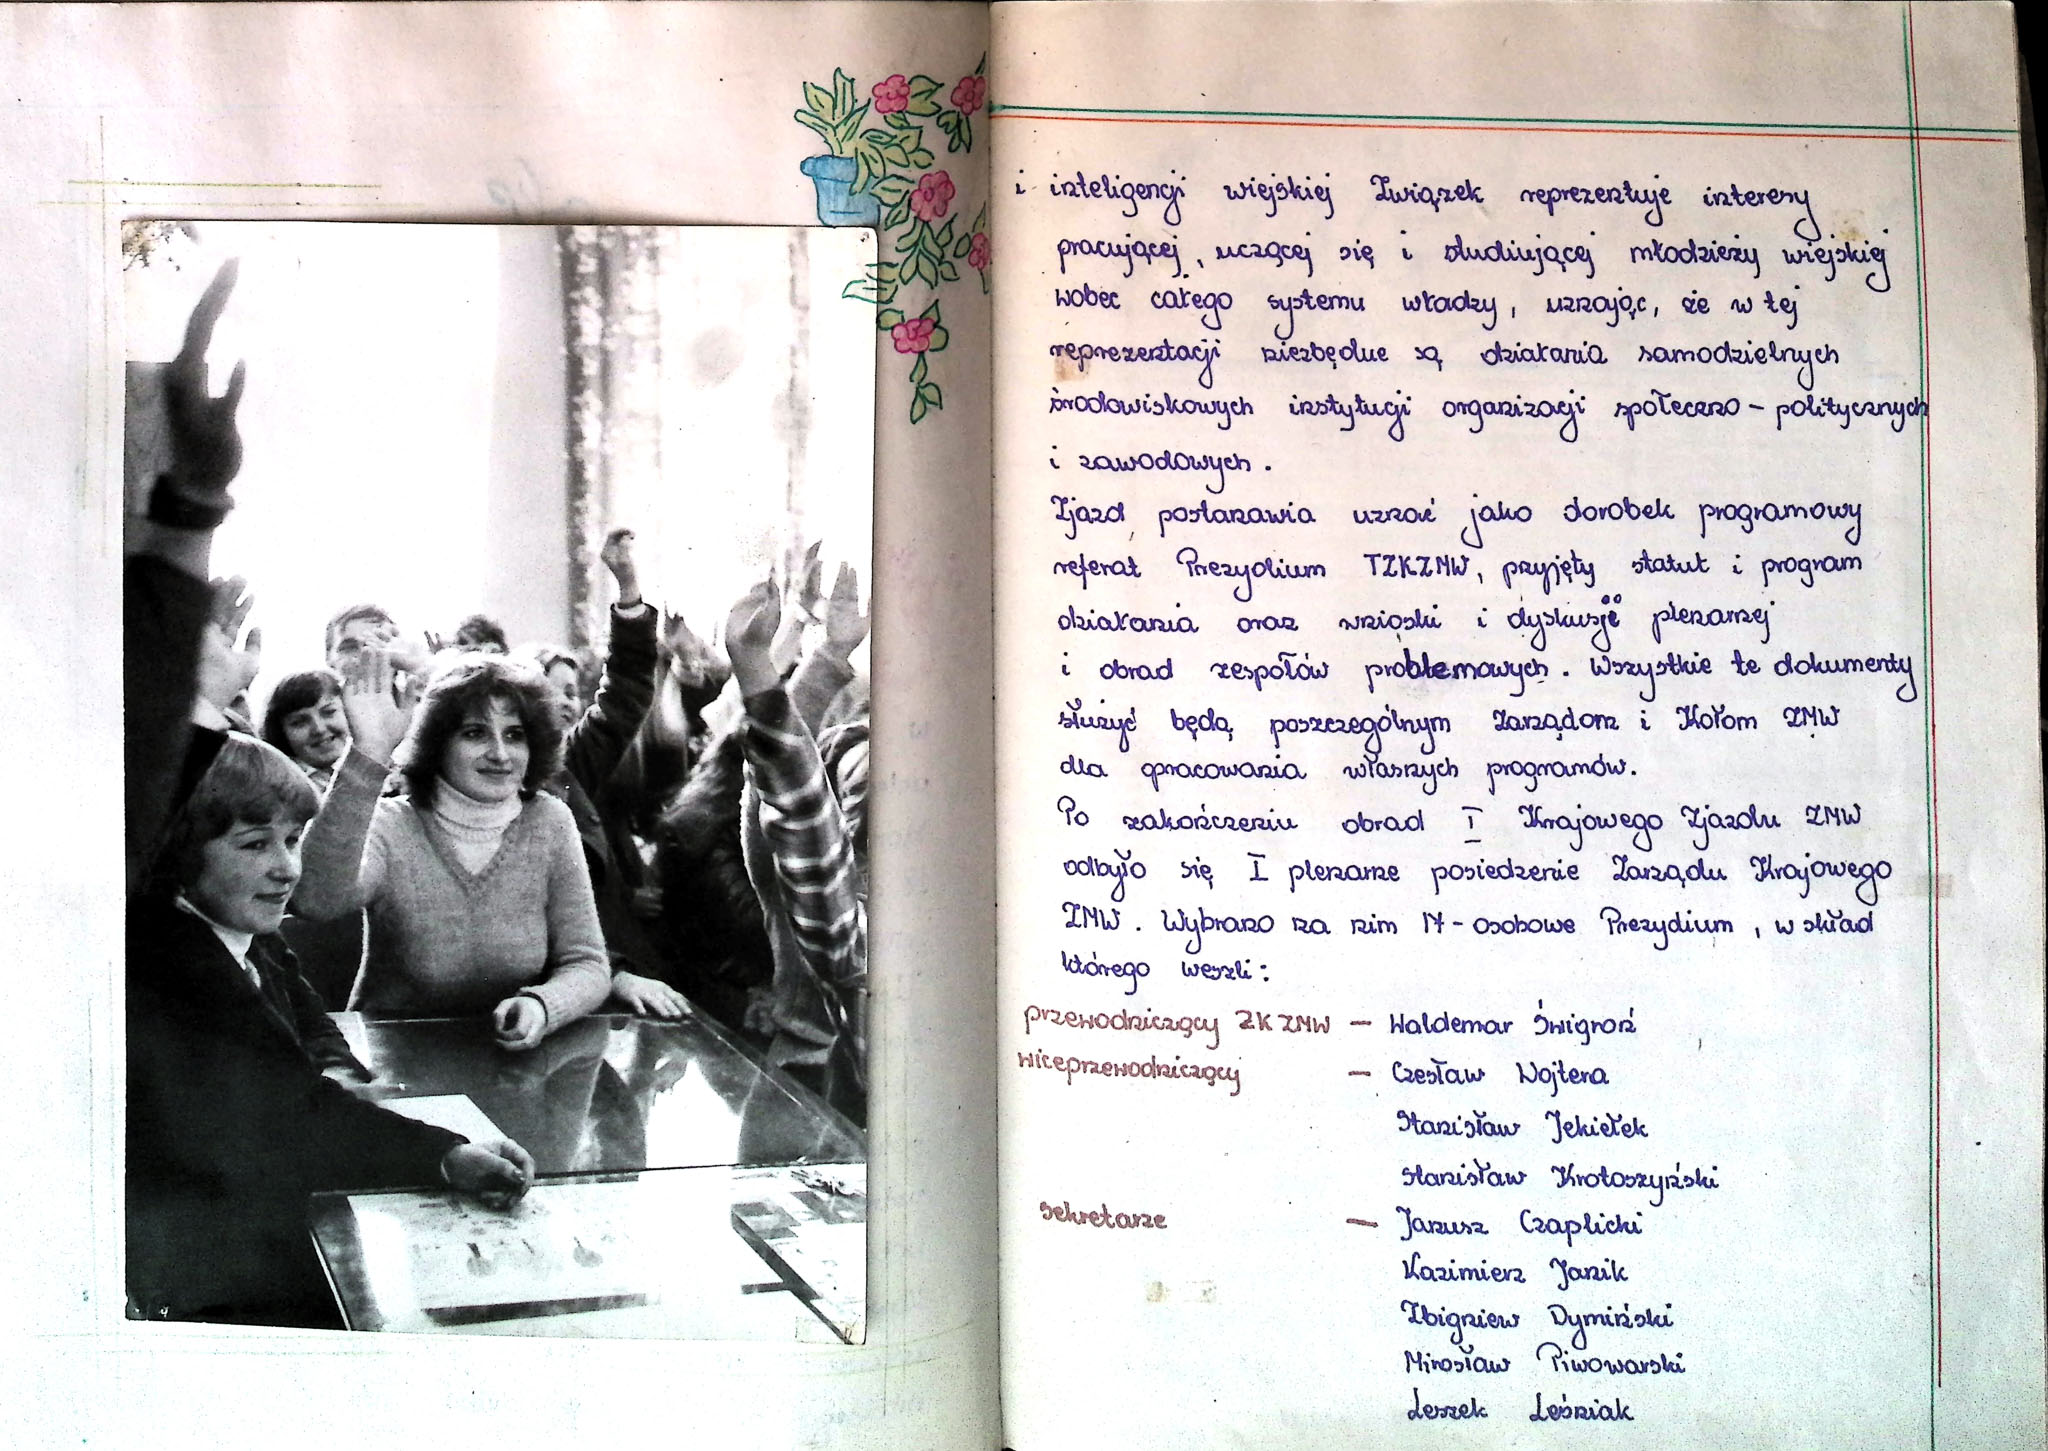 i inteligencji wiejskiej Związek reprezentuje interesy
pracującej, uczącej się i studiującej młodzieży wiejskiej
wobec całego systemu władzy, uznając, że w tej
reprezentacji niezbędne są działania samodzielnych
środowiskowych instytucji organizacji społeczno - politycznych
i zawodowych.
Zjazd postanawia uznać jako dorobek programowy
referat Prezydium TZKZMW, przyjęty statut i program
działania oraz wnioski i dyskusji plenarnej
i obrad zespołów problemowych. Wszystkie te dokumenty
służyć będą poszczególnym Zarządom i Kołom ZMW
dla opracowania własnych programów.
Po zakończeniu obrad I Krajowego Zjazdu ZMW
odbyło się I plenarne posiedzenie Zarządu Krajowego
ZMW. Wybrano na nim 17-osobowe Prezydium, w skład
którego weszli:
przewodniczący ZK ZMW - Waldemar Świgroń
wiceprzewodniczący - Czesław Wojtera
Stanisław Jekiełek
Stanisław Krotoszyński
sekretarze - Janusz Czaplicki
Kazimierz Janik
Zbigniew Dymiński
Mirosław Piwowarski
Leszek Leśniak